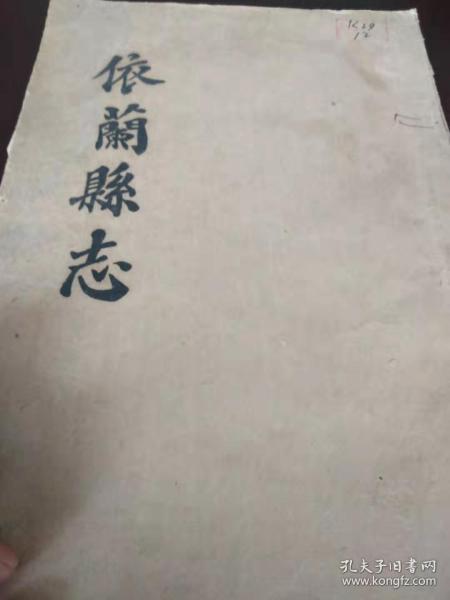 依蘭縣志
K29
12
孔夫子旧书网
www.kongfz.com